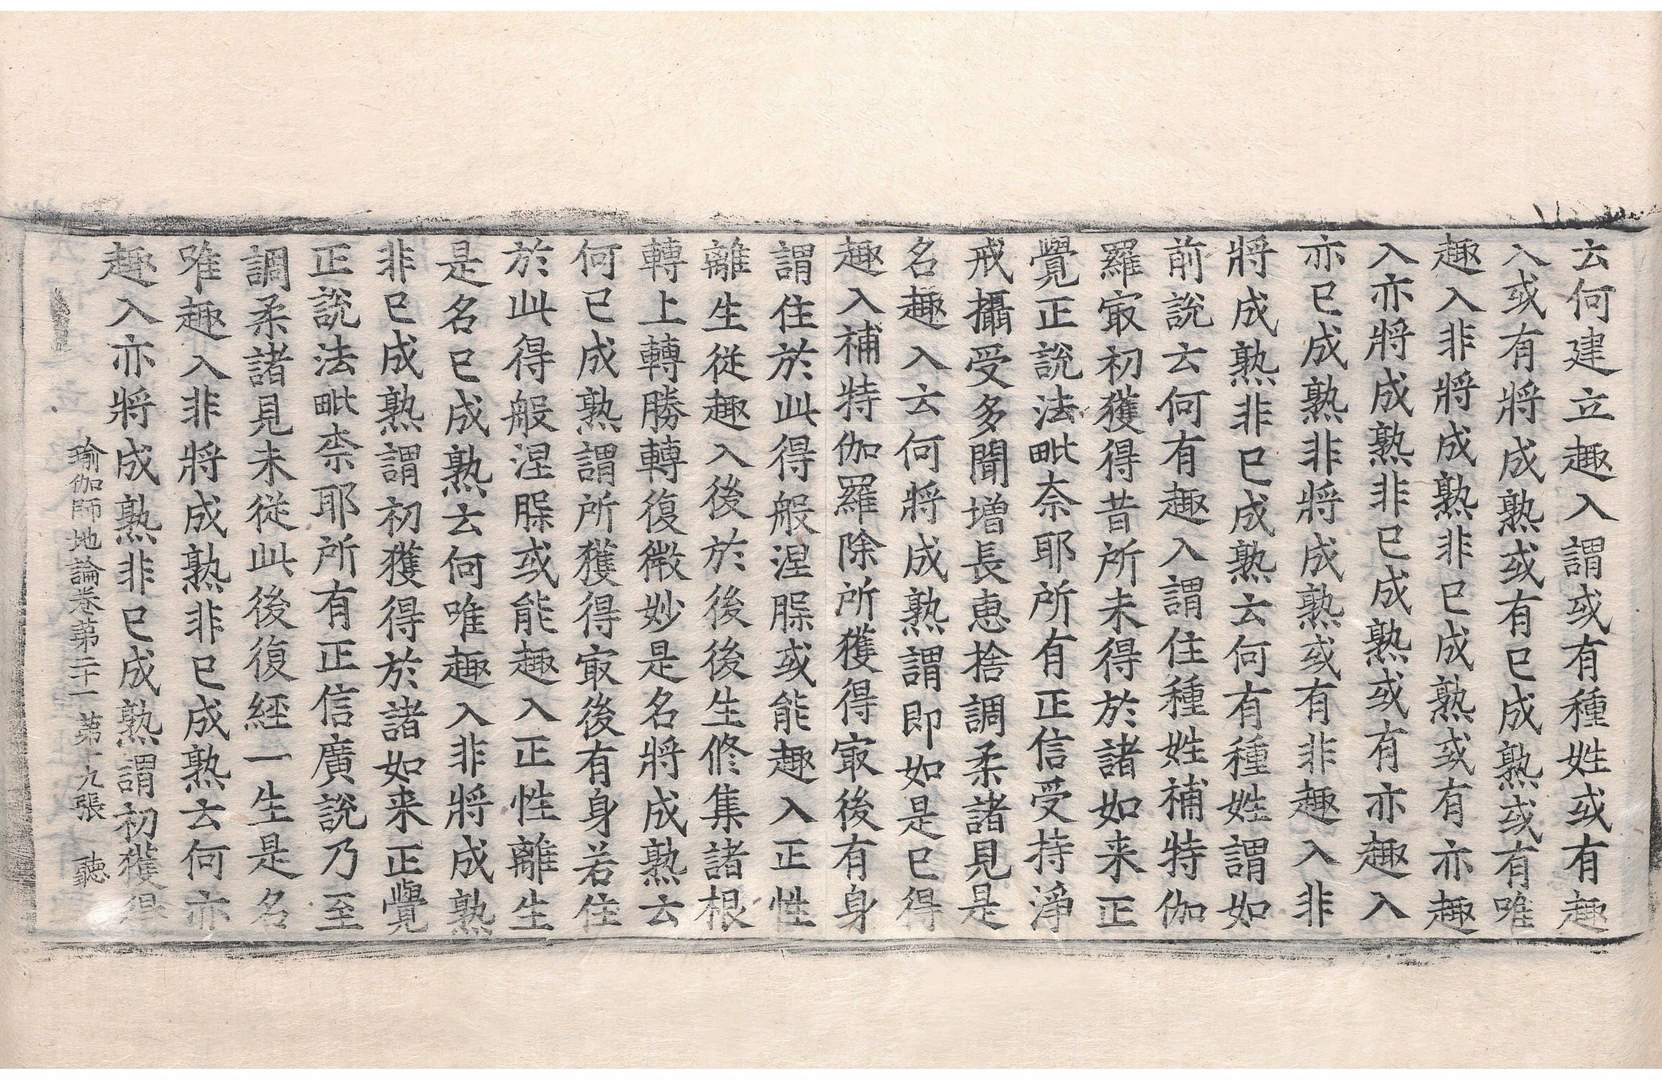 云何建立趣入謂或有種姓或有趣
入或有將成熟或有已成熟或有唯
趣入非將成熟非已成熟或有亦趣
入亦將成熟非已成熟或有亦趣入
亦已成熟非將成熟或有非趣入非
將成熟非已成熟云何有種姓謂如
前說云何有趣入謂住種姓補特伽
羅㝡初獲得昔所未得於諸如来正
覺正說法毗奈耶所有正信受持淨
戒攝受多聞增長惠捨調柔諸見是
名趣入云何將成熟謂即如是已得
趣入補特伽羅除所獲得㝡後有身
謂住於此得般涅槃或能趣入正性
離生從趣入後於後後生修集諸根
轉上轉勝轉復微妙是名將成熟云
何已成熟謂所獲得㝡後有身若住
於此得般涅槃或能趣入正性離生
是名已成熟云何唯趣入非將成熟
非已成熟謂初獲得於諸如来正覺
正說法毗柰耶所有正信廣說乃至
調柔諸見未從此後復經一生是名
唯趣入非將成熟非已成熟云何亦
趣入亦將成熟非已成熟謂初獲得
瑜伽師地論卷苐二十一 苐十九張 聽